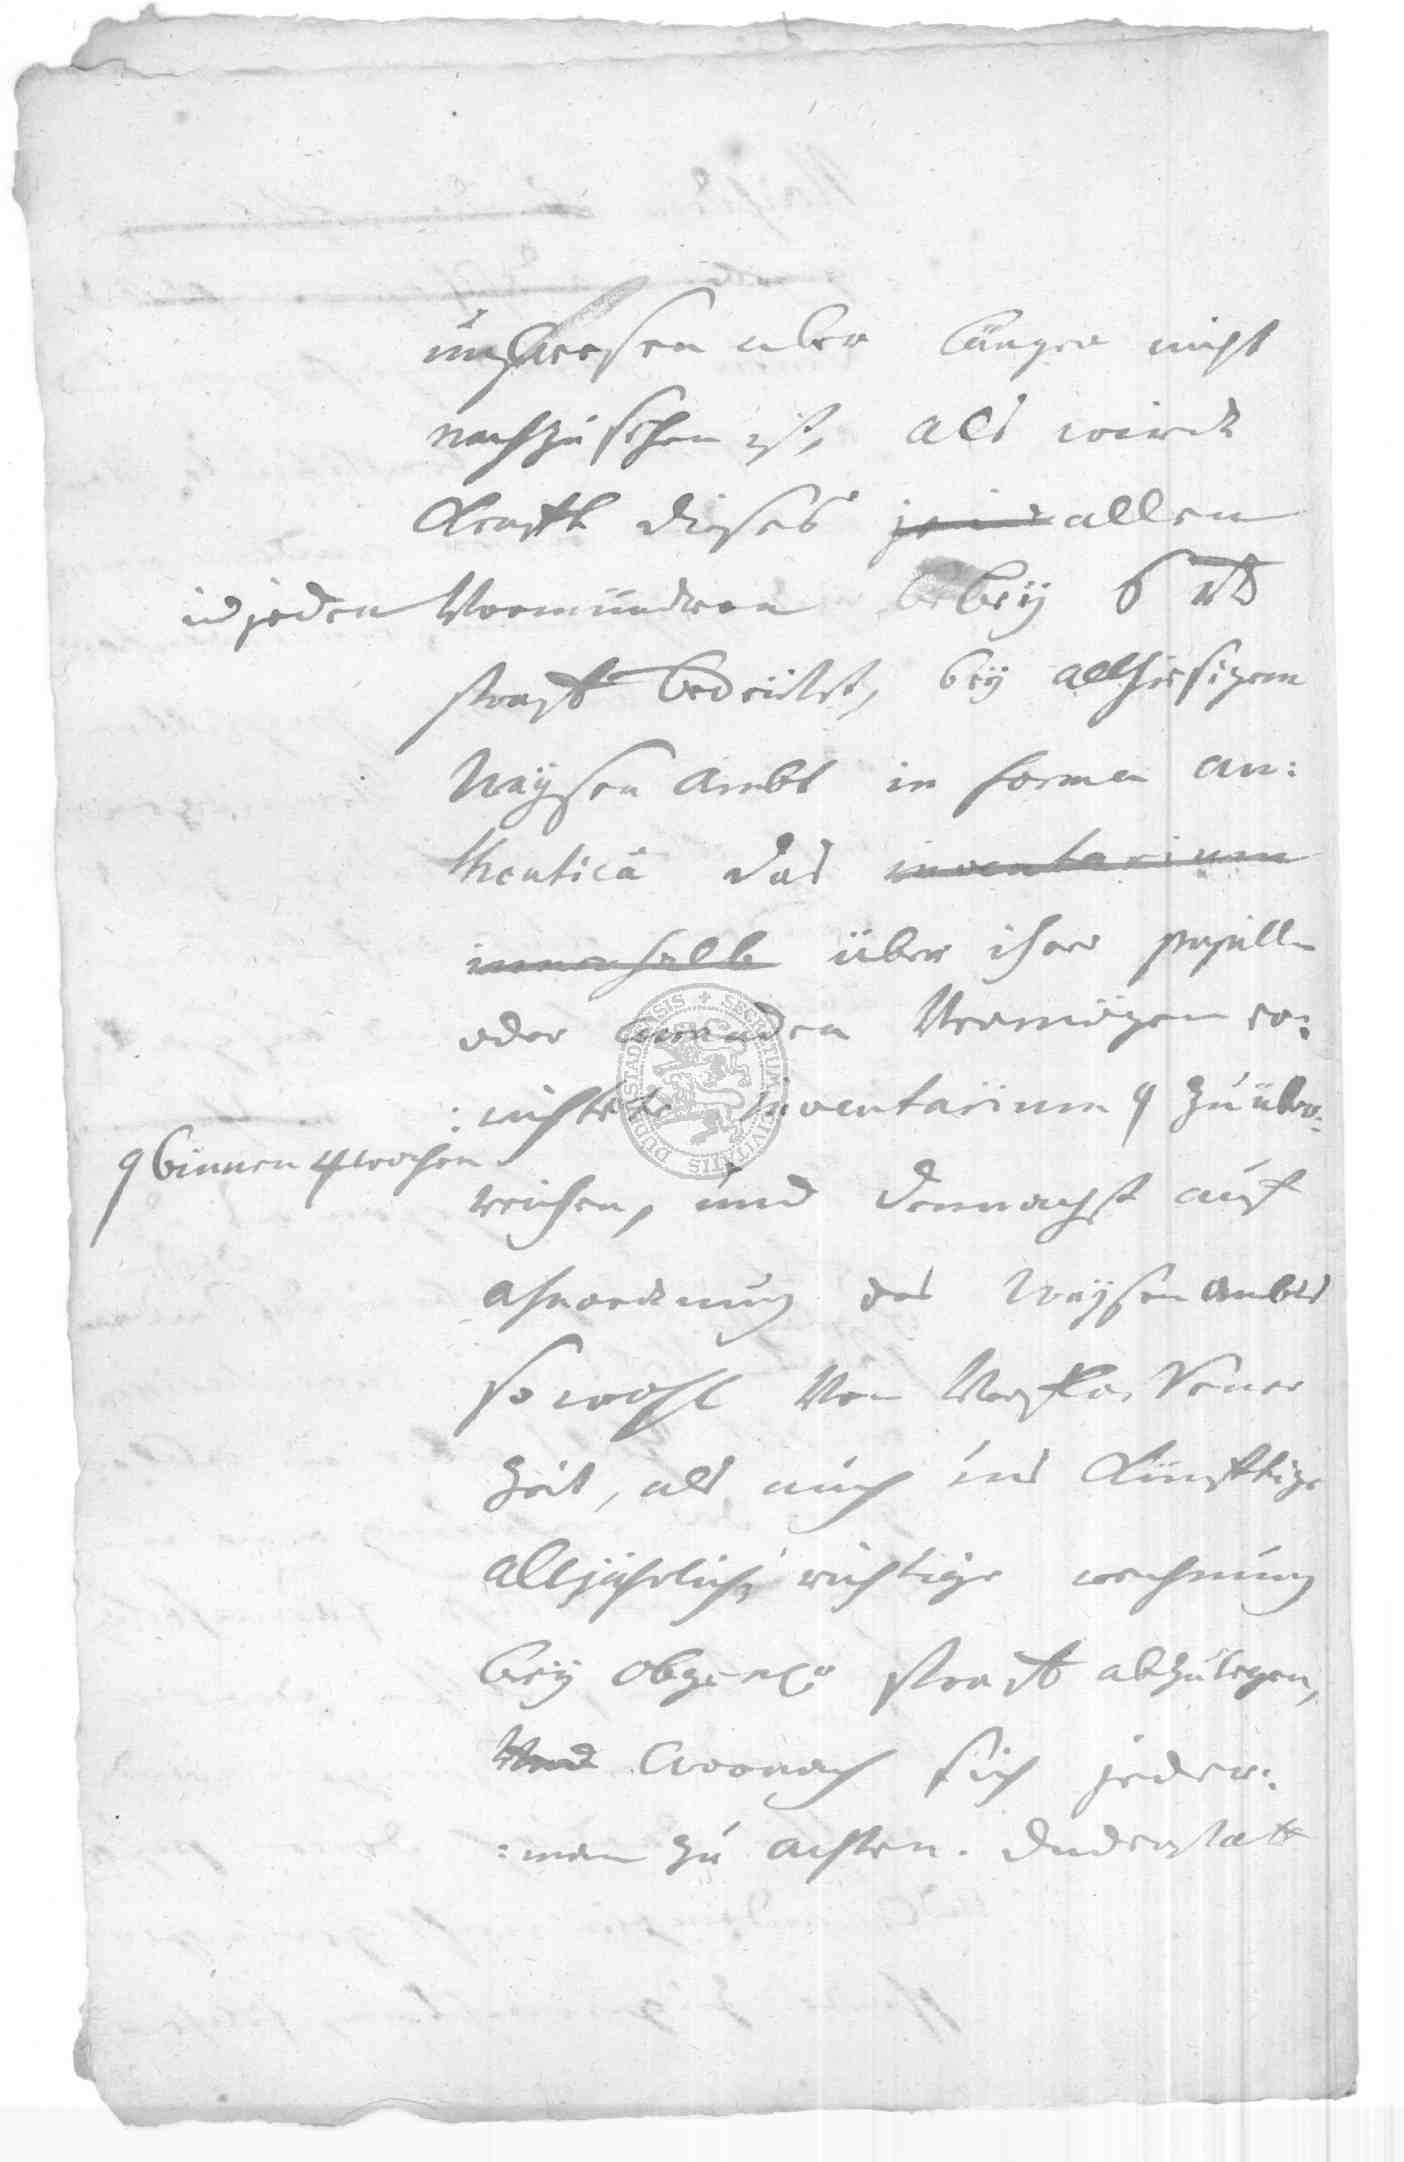 ungewesen aber länger nicht
nachzusehen ist, als wirdt
Krafft dieses jeder allen
id jeden Vormündern bey 6 rthl
straff bedeütet, bey allhiesigem
Waÿsen Ambt in forma au:
thentica das inventarium
innerhalb über ihrer pupillen
oder curanden Vermögen er:
:richtete inventarium zu über:
binnen 4 wochen
reichen, und demnachst auf
ahnordnung des Waÿsen Ambts
so wohl von Verfloßener
Zeit, als auch ins Künfftige
alljährlich richtige rechnung
bey straff abzulegen,
Wornach sich jeder:
:man zu achten. Duderstatt
SECRETUM CIVITATIS DUDERSTADENSIS